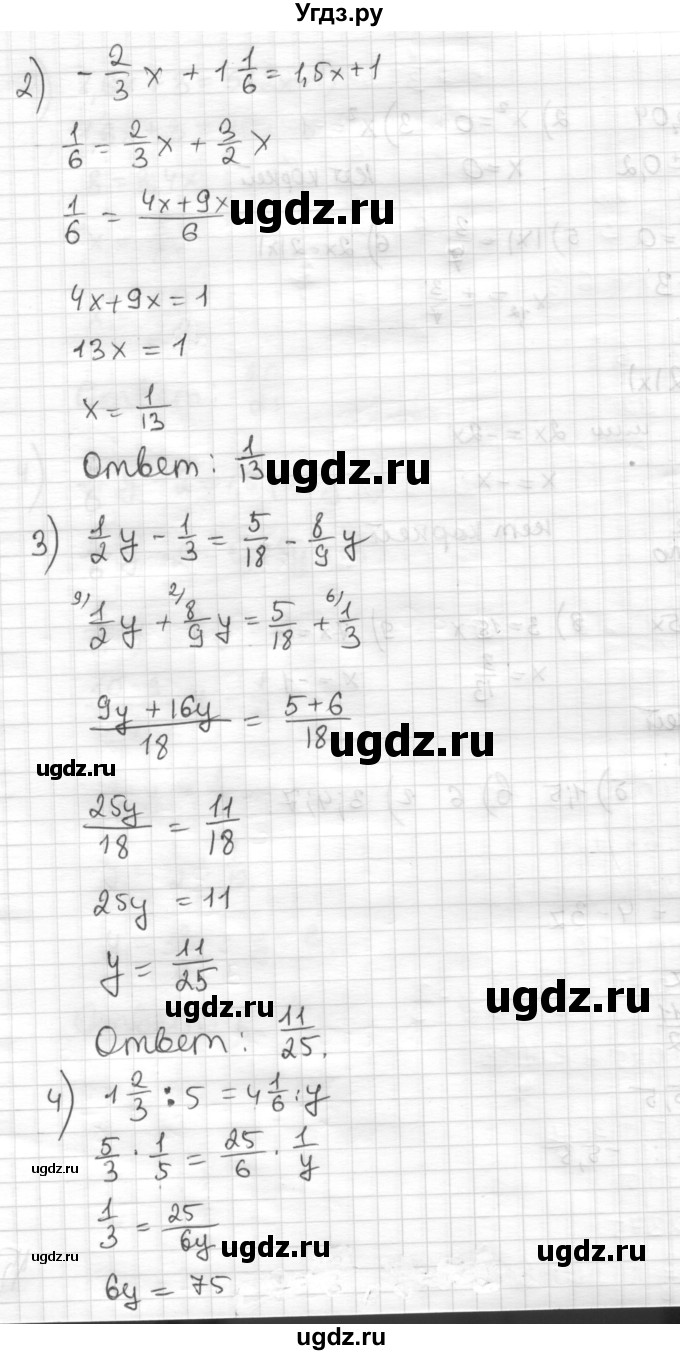 Угдз.ру
2) - 2/3 x + 1 1/6 = 1,5x + 1
1/6 = 2/3 x + 3/2 x
1/6 = (4x + 9x)/6
ugdz.ru
4x + 9x = 1
13x = 1
x = 1/13
Ответ: 1/13
ugdz.ru
3) 1/2 y - 1/3 = 5/18 - 8/9 y
9) 1/2 y + 2) 8/9 y = 5/18 + 6) 1/3
(9y + 16y)/18 = (5 + 6)/18
ugdz.ru
ugdz.ru
25y/18 = 11/18
25y = 11
y = 11/25
ugdz.ru
ugdz.ru
Ответ: 11/25.
4) 1 2/3 : 5 = 4 1/6 : y
5/3 · 1/5 = 25/6 · 1/y
ugdz.ru
1/3 = 25/6y
ugdz.ru
ugdz.ru
ugdz.ru
6y = 75
ugdz.ru